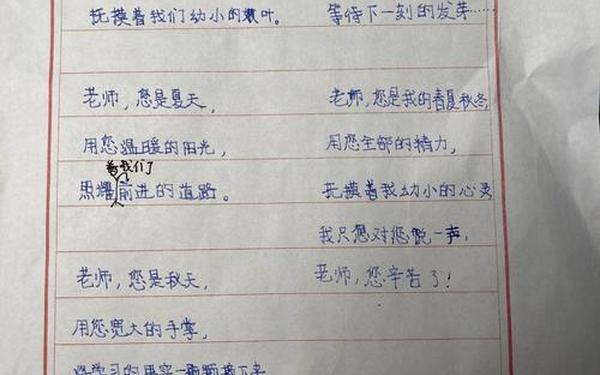 抚摸着我们幼小的嫩叶。
老师，您是夏天，
用您温暖的阳光，
照耀着我们前进的道路。
老师，您是秋天，
用您宽大的手掌，
将学习的果实一颗颗摘下来
等待下一刻的发芽……
老师，您是我的春夏秋冬，
用您全部的精力，
抚摸着我幼小的心灵
我只想对您说一声，
老师，您辛苦了！